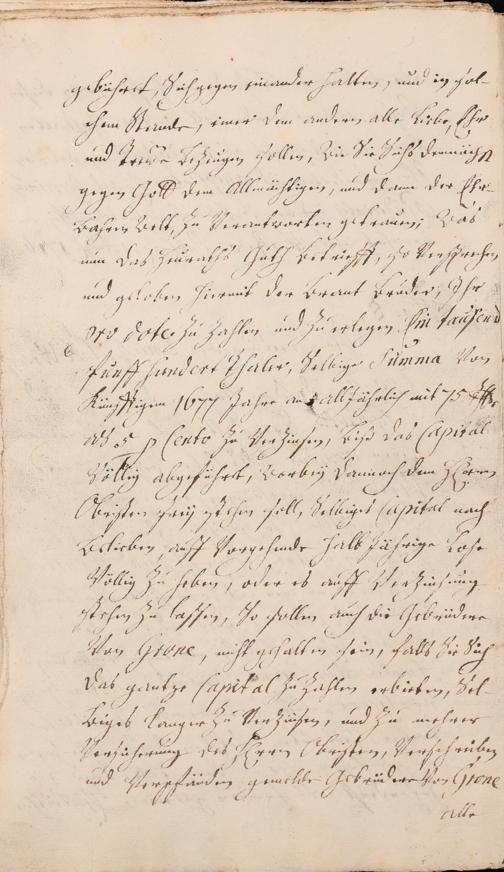 gebühret, Sich gegen einander halten, und in sol-
chem Stande, einer dem andern alle Liebe, Ehr
und Treüe bezeugen sollen, wie Sie Sichs dermahleinst
gegen Gott dem Allmächtigen, und dann der Ehr-
bahren Welt, zu Verantworten getrauen; Was
nun das Heuraths Guth betrifft, so Versprechen
und geloben hiermit der Braut Brüder, Ihr
pro dote zu zahlen und zu erlegen Ein tausend
fünff hundert Thaler, Selbige Summa Von
Künfftigem 1677 Jahre an alljährlich mit 75
als 5 p Cento zu Verzinsen, biß das Capital
Völlig abgeführet, worbey dannoch dem Herrn
Obristen frey stehen soll, Selbiges Capital nach
belieben, auff Vorgehende halb Jährige Lose
Völlig zu heben, oder es auff Verzinsung
stehen zu lassen, So sollen auch die Gebrüdere
Von Grone, nicht gehalten sein, falls Sie Sich
das gantze Capital zu zahlen erbieten, Sel-
biges länger zu Verzinsen, und zu mehrer
Versicherung des Herrn Obristen, Verschreiben
und Verpfänden gemelte Gebrüdere Von Grone
alle